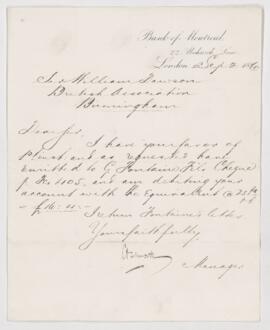 Bank of Montreal
London
Sir William Dawson
British Association
Birmingham
Dear Sir,
I have your favor of
and as requested have
remitted to G. Fontaine Fils Cheque
405, and am debiting your
account with the Equivalent @
£16
I return Fontaine's letter
Yours faithfully
Manager